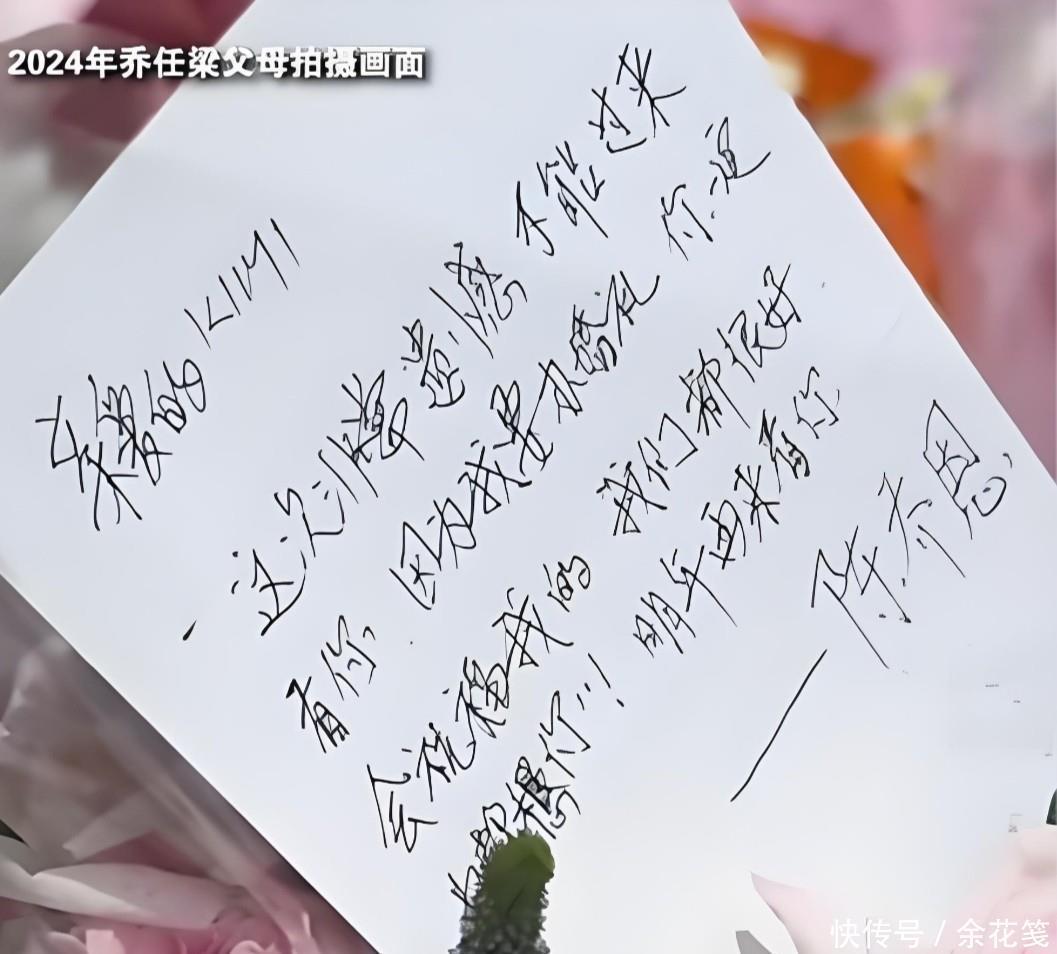 2024年乔任梁父母拍摄画面
亲爱的KIMI
这次遗憾 不能过来
看你, 因为我要办婚礼 你
会祝福我的 我们都很好
都想你!!! 明年再来看你
——陈乔恩
快传号/余花笺